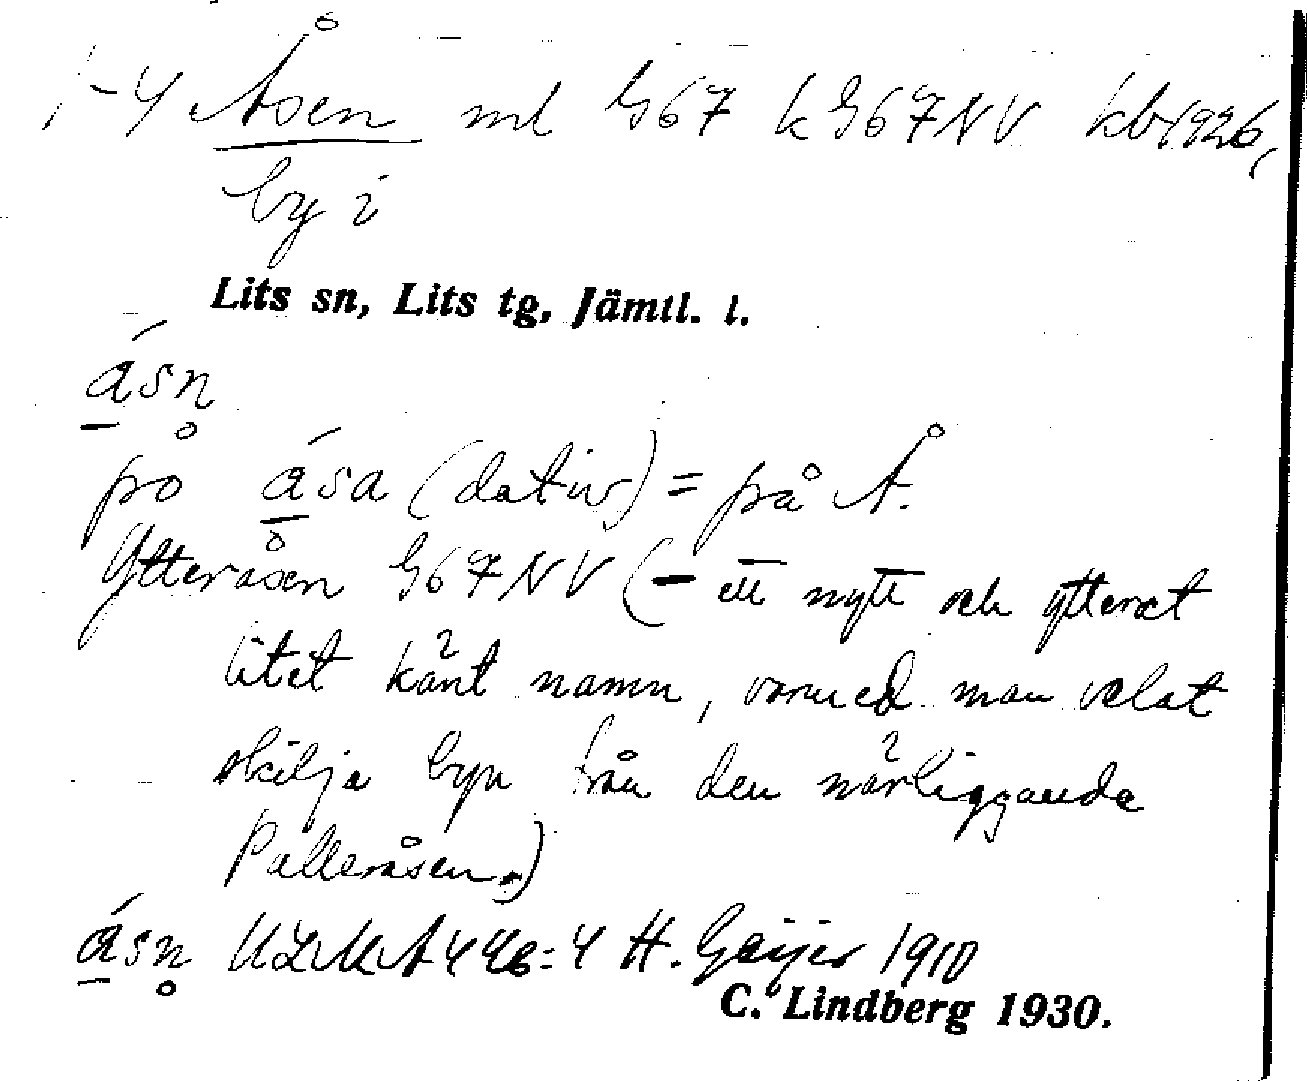 1-4 Åsen ml G67 k G67NV kb 1926,
by i
Lits sn, Lits tg, Jämtl. l.
á̱sn̥
på á̱sa (dativ) = på Å.
Ytteråsen G67NV (– ett nytt och ytterst
litet känt namn, varmed man velat
skilja byn från den närliggande
Palleråsen.)
á̱sn̥ ULMA 446:4 H. Geijer 1910
C. Lindberg 1930.